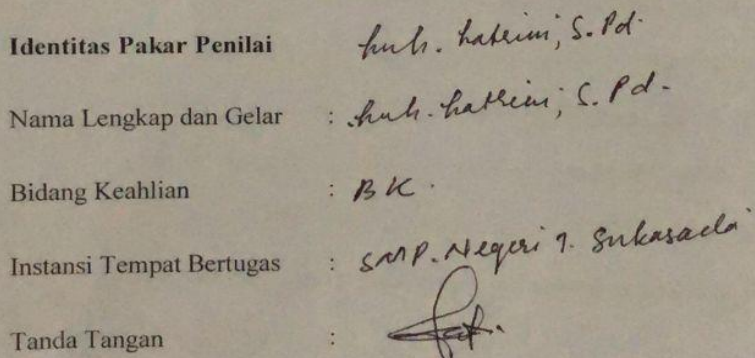 Identitas Pakar Penilai S.Pd.
Nama Lengkap dan Gelar : S.Pd.
Bidang Keahlian : BK.
Instansi Tempat Bertugas : SMP. Negeri Sukasada
Tanda Tangan :